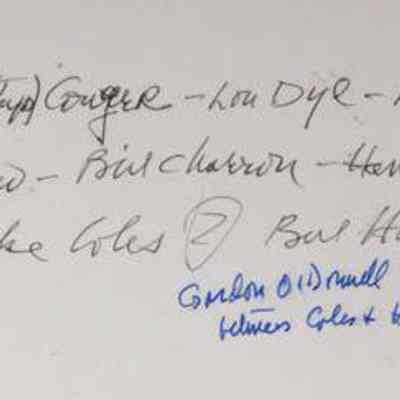 Conger - Lou Dyl -
- Bill Charron -
ke Coles ? Bill H
Gordon O'Donnell
between Coles + H